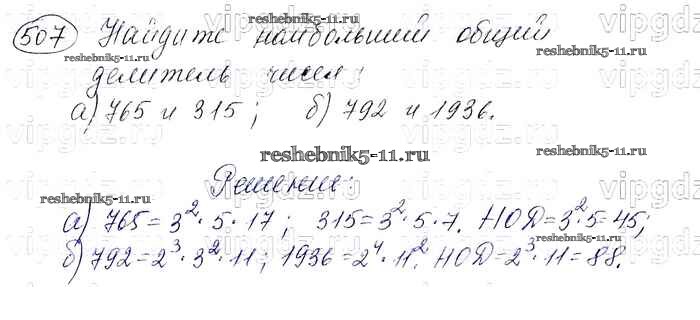 507 Найдите наибольший общий
делитель чисел:
а) 765 и 315; б) 792 и 1936.
Решение:
а) 765 = 3²·5·17; 315 = 3²·5·7. НОД = 3²·5 = 45;
б) 792 = 2³·3²·11; 1936 = 2⁴·11². НОД = 2³·11 = 88.
reshebnik5-11.ru
reshebnik5-11.ru
reshebnik5-11.ru
reshebnik5-11.ru
reshebnik5-11.ru
reshebnik5-11.ru
reshebnik5-11.ru
vipgdz
vipgdz
vipgdz
vipgdz